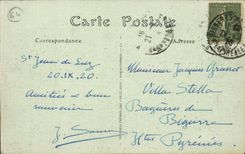 64
Carte Postale
Correspondance
St Jean de Luz
20.IX.20
Amitiés & bon
souvenir
Monsieur Jacques
Villa Stella
Bagnères de
Bigorre
Htes Pyrénées